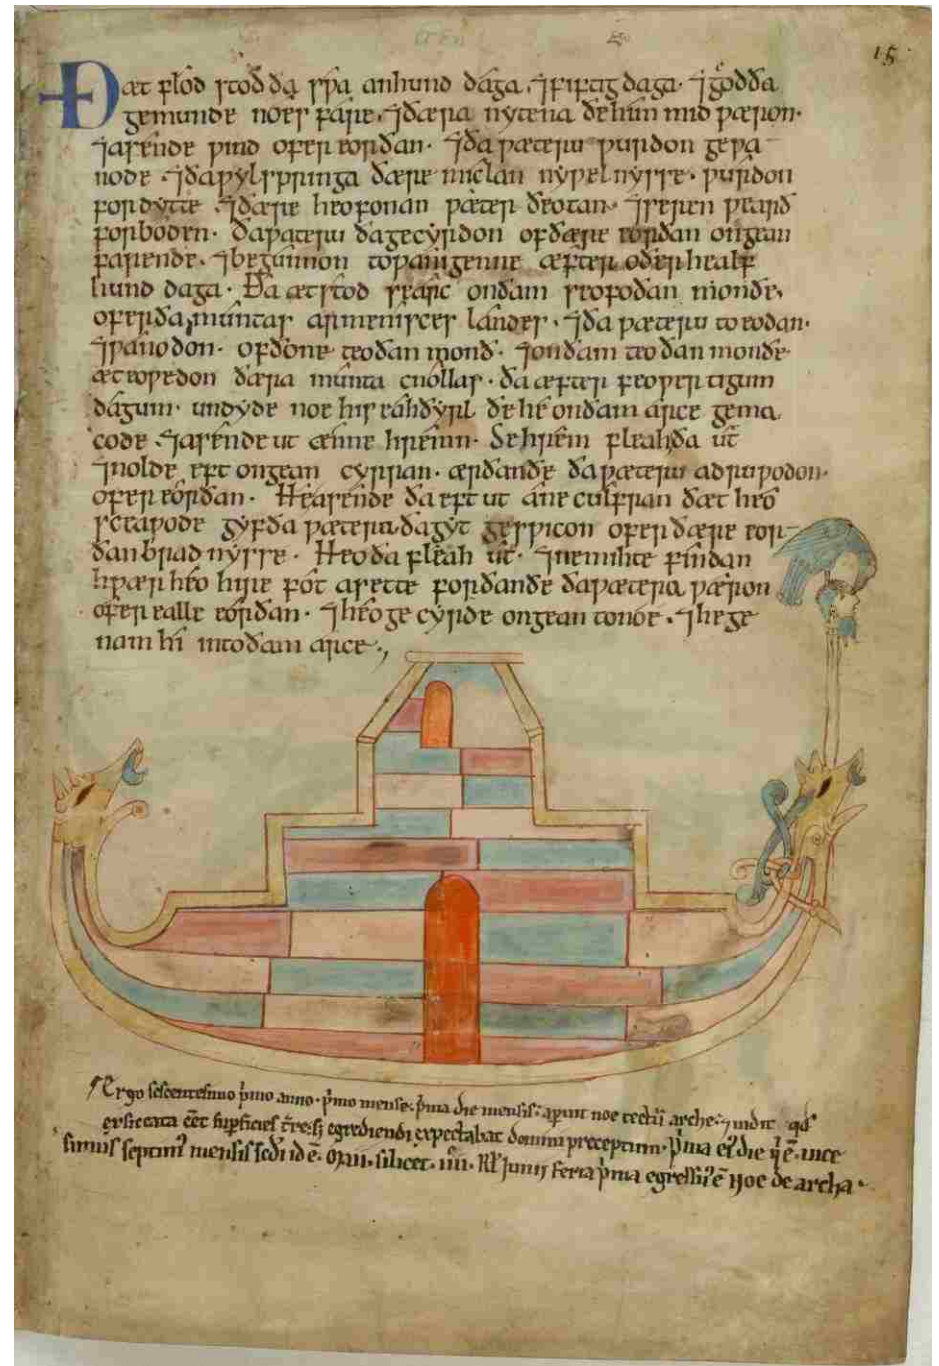 15
Ðæt flód stód ða sƿa anhund dága. ⁊fiftig daga. ⁊gód ða
gemunde noes fare. ⁊ðæra nytena ðe him mid ƿæron.
⁊asende ƿind ofer eorðan. ⁊ða ƿæteru ƿurdon geƿa
node. ⁊ða ƿylspringa ðære miclan nyƿelnysse. ƿurdon
fordytte. ⁊ðære heofonan ƿæter ðeotan. ⁊se ren ƿearð
forboden. ða ƿæteru ða gecyrdon of ðære eorðan ongean
farende. ⁊begunnon to ƿanigenne æfter oðer healf
hund daga. Ða ætstod se arc on ðam seofoðan monðe.
ofer ða muntas armenisces landes. ⁊ða ƿæteru toeodan.
⁊ƿanodon. of ðone teoðan monð. ⁊on ðam teoðan monðe
æteoƿedon ðæra munta cnollas. ða æfter feoƿertigum
dágum. undyde noe his eahðyrl ðe he on ðam arce gema
code. ⁊asende ut ænne hremn. Se hrem fleah ða ut
⁊nolde eft ongean cyrran. ærðan ðe ða ƿæteru adruƿodon.
ofer eorðan. He asende ða eft ut ane culfran ðæt heo
sceaƿode gyf ða ƿæteru ða gyt gesƿicon ofer ðære eor
ðan bradnysse. Heo ða fleah ut. ⁊ne mihte findan
hƿær heo hire fót asette forðan ðe ða ƿætera ƿæron
ofer ealle eorðan. ⁊heo gecyrde ongean to noe. ⁊he ge
nam hi into ðam arce.,
Ergo sescentesimo p̄mo anno. p̄mo mense. p̄ma die mensis. apuit noe tectū arche. ⁊ uidit qđ
exsiccata eēt supficies t̄re. sꝫ egrediendi expectabat domini preceptum. p̄ma eī die q̄ ē uice
simus septim' mensis scđi id ē. maii. silicet. iiii. kł iunii feria p̄ma egressus ē noe de archa.